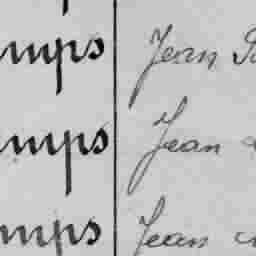 mps Jean
mps Jean
mps Jean